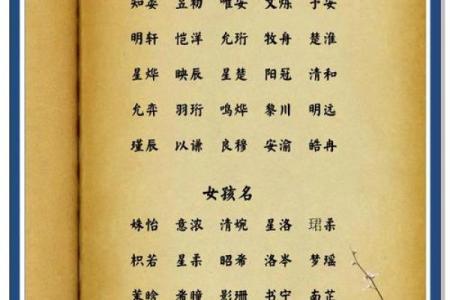 知晏 昱初 唯安 文烁 予安
明轩 恺洋 允珩 牧舟 楚淮
星烨 映辰 星楚 阳冠 清和
允弈 羽珩 鸣烨 黎川 明远
瑾辰 以谦 良穆 安渝 皓冉
女孩名
姝怡 意浓 清婉 星洛 珺柔
枳若 星柔 昭希 洛岑 梦瑶
希瞳 影珊 书宁 南芷